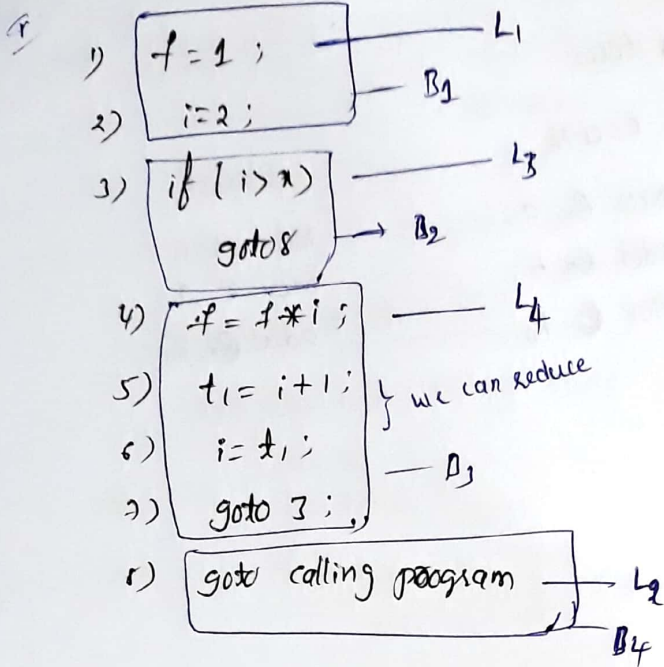 1) f = 1 ; L1
2) i = 2 ; B1
3) if ( i > x ) L3
goto 8 B2
4) f = f * i ; L4
5) t1 = i + 1 ; } we can reduce
6) i = t1 ;
7) goto 3 ; B3
8) goto calling program L2
B4